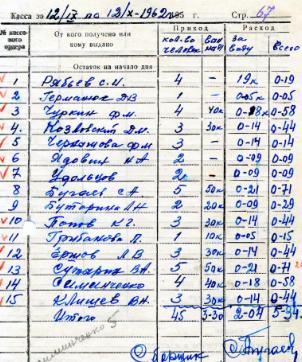 Касса за 12/IX по 12/X-1962 195 г. Стр. 67
№ кассового ордера От кого получено или кому выдано Приход Расход
кол-во человек за воду Всего
Остаток на начало дня
1 Рябьев С.М. 4 — 19к 0-19
2 Германюк 1 — 0.05к 0.05
3 Чуркин Ф.М. 4 40к 0-18к 0-58
4. Козловский Д.М. 3 30к 0-14 0-44
5 Черкашова Ф.М. 3 — 0-14 0-14
6 Ядовин Н А 2 — 0-09 0-09
7 Удальцов 2 — 0-09 0-09
8 Бугаев С А 5 50к 0-21 0-71
9 Буторина Л.Н. 2 20к 0-09 0-29
10 Попов К.Г. 3 30к 0-14 0-44
11 1 10к 0-05 0-15
12 Ершов Л.В 3 30к 0-14 0-44
13 Сухарев В.А. 5 50к 0-21 0-71
14 Семинченко 4 40к 0-18 0-58
15 Клищев В.Н. 3 30к 0-14 0-44
Итого 45 3-30 2-04 5-34